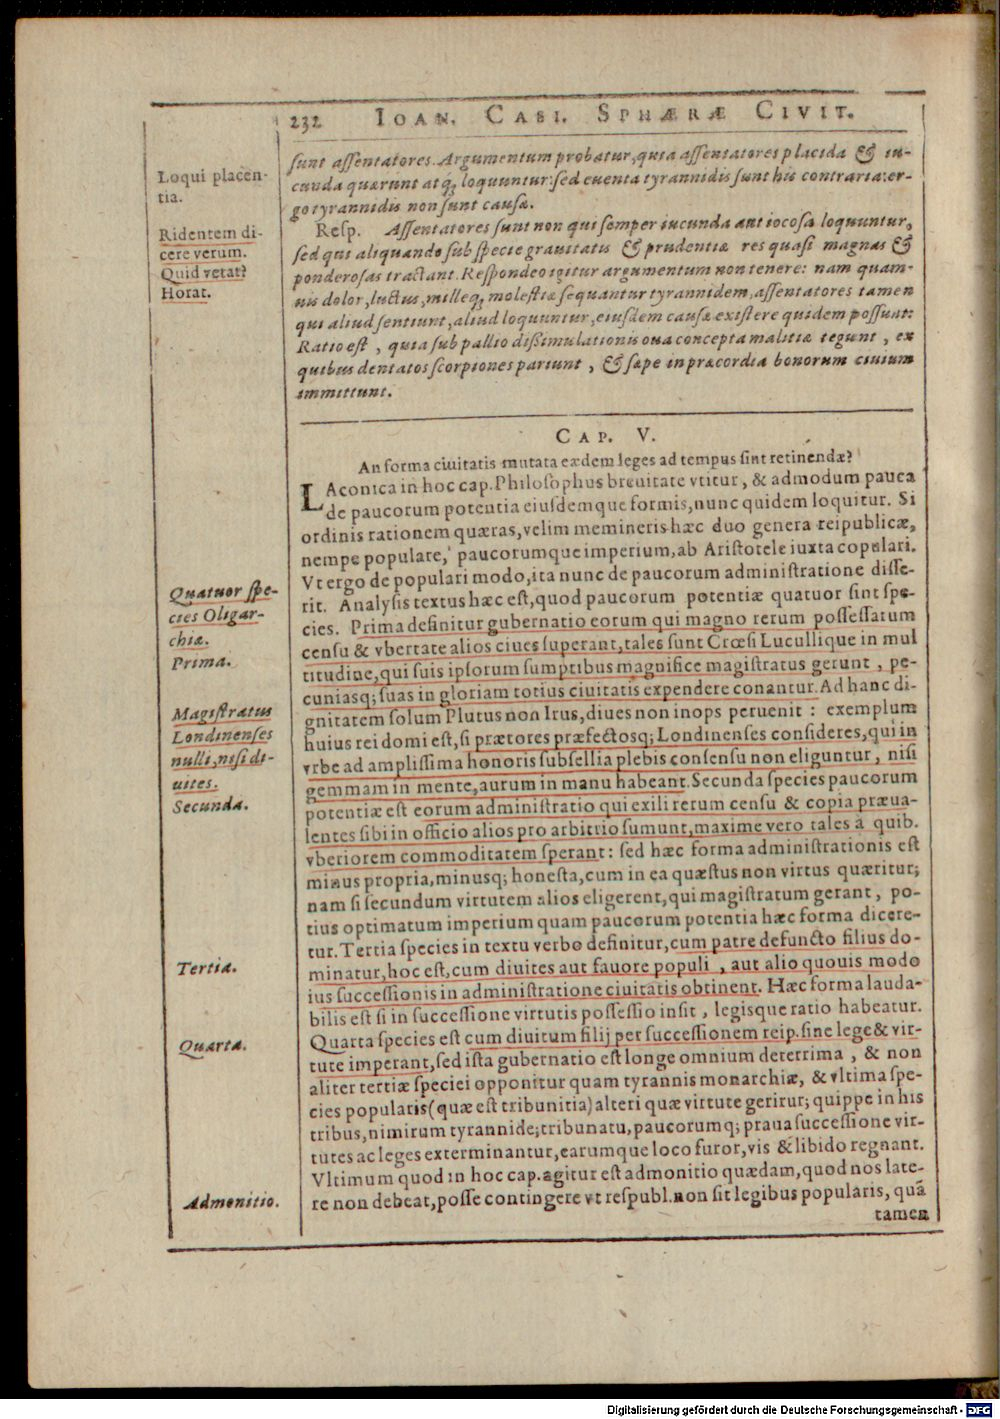 232 IOAN. CASI. SPHÆRÆ CIVIT.
Loqui placen-
tia.
Ridentem di-
cere verum.
Quid vetat?
Horat.
sunt assentatores. Argumentum probatur, quia assentatores placida & iu-
cunda quærunt atq; loquuntur: sed euenta tyrannidis sunt his contraria: er-
go tyrannidis non sunt causæ.
Resp. Assentatores sunt non qui semper iucunda aut iocosa loquuntur,
sed qui aliquando sub specie grauitatis & prudentiæ res quasi magnas &
ponderosas tractant. Respondeo igitur argumentum non tenere: nam quam-
uis dolor, luctus, milleq; molestiæ sequantur tyrannidem, assentatores tamen
qui aliud sentiunt, aliud loquuntur, eiusdem causæ existere quidem possunt:
Ratio est, quia sub pallio dissimulationis oua concepta malitiæ tegunt, ex
quibus dentatos scorpiones pariunt, & sæpe in præcordia bonorum ciuium
immittunt.
CAP. V.
An forma ciuitatis mutata eædem leges ad tempus sint retinendæ?
LAconica in hoc cap. Philosophus breuitate vtitur, & admodum pauca
de paucorum potentia eiusdemque formis, nunc quidem loquitur. Si
ordinis rationem quæras, velim memineris hæc duo genera reipublicæ,
nempe populare, paucorumque imperium, ab Aristotele iuxta copulari.
Vt ergo de populari modo, ita nunc de paucorum administratione disse-
rit. Analysis textus hæc est, quod paucorum potentiæ quatuor sint spe-
cies. Prima definitur gubernatio eorum qui magno rerum possessarum
censu & vbertate alios ciues superant, tales sunt Crœsi Lucullique in mul
titudine, qui suis ipsorum sumptibus magnifice magistratus gerunt, pe-
cuniasq; suas in gloriam totius ciuitatis expendere conantur. Ad hanc di-
gnitatem solum Plutus non Irus, diues non inops peruenit: exemplum
huius rei domi est, si prætores præfectosq; Londinenses consideres, qui in
vrbe ad amplissima honoris subsellia plebis consensu non eliguntur, nisi
gemmam in mente, aurum in manu habeant. Secunda species paucorum
potentiæ est eorum administratio qui exili rerum censu & copia præua-
lentes sibi in officio alios pro arbitrio sumunt, maxime vero tales a quib.
vberiorem commoditatem sperant: sed hæc forma administrationis est
minus propria, minusq; honesta, cum in ea quæstus non virtus quæritur;
nam si secundum virtutem alios eligerent, qui magistratum gerant, po-
tius optimatum imperium quam paucorum potentia hæc forma dicere-
tur. Tertia species in textu verbo definitur, cum patre defuncto filius do-
minatur, hoc est, cum diuites aut fauore populi, aut alio quouis modo
ius successionis in administratione ciuitatis obtinent. Hæc forma lauda-
bilis est si in successione virtutis possessio insit, legisque ratio habeatur.
Quarta species est cum diuitum filij per successionem reip. sine lege & vir-
tute imperant, sed ista gubernatio est longe omnium deterrima, & non
aliter tertiæ speciei opponitur quam tyrannis monarchiæ, & vltima spe-
cies popularis (quæ est tribunitia) alteri quæ virtute geritur; quippe in his
tribus, nimirum tyrannide; tribunatu, paucorumq; praua successione vir-
tutes ac leges exterminantur, earumque loco furor, vis & libido regnant.
Vltimum quod in hoc cap. agitur est admonitio quædam, quod nos late-
re non debeat, posse contingere vt respubl. non sit legibus popularis, quā
tamen
Quatuor spe-
cies Oligar-
chiæ.
Prima.
Magistratus
Londinenses
nulli, nisi di-
uites.
Secunda.
Tertia.
Quarta.
Admonitio.
Digitalisierung gefördert durch die Deutsche Forschungsgemeinschaft - DFG